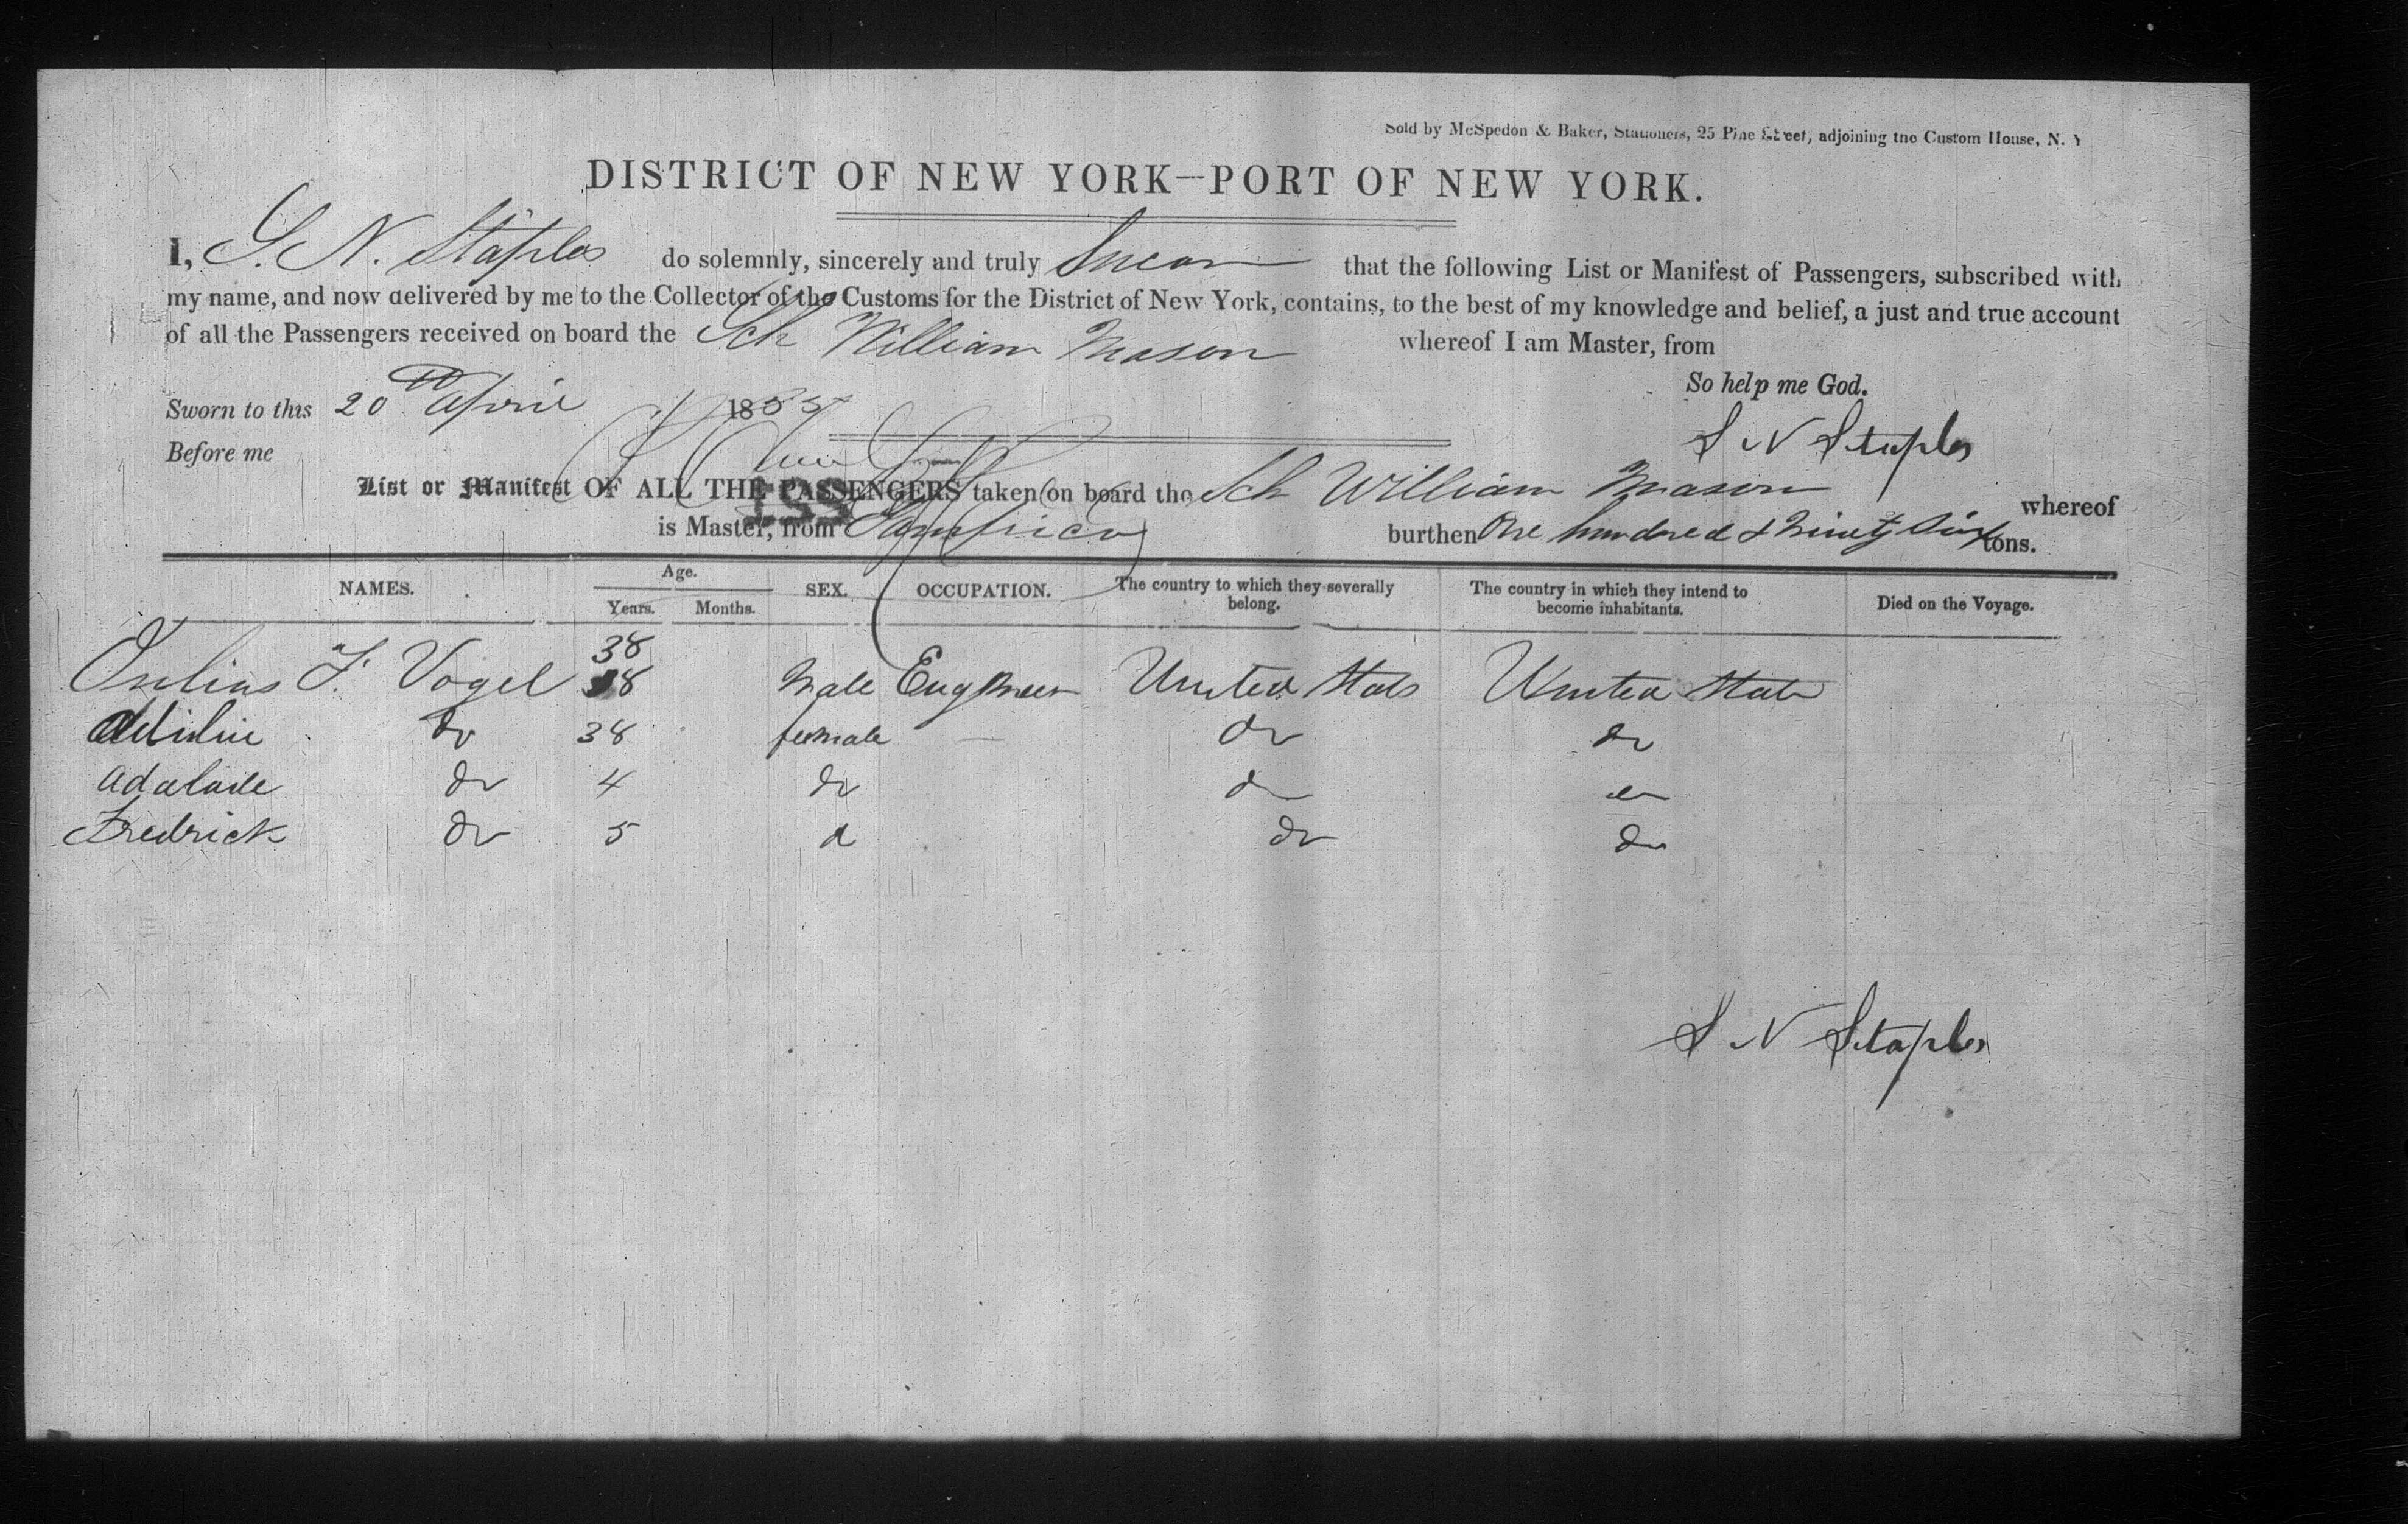 Sold by McSpedon & Baker, Stationers, 25 Pine Street, adjoining the Custom House, N. Y
DISTRICT OF NEW YORK—PORT OF NEW YORK.
I, S. N. Staples do solemnly, sincerely and truly Swear that the following List or Manifest of Passengers, subscribed with
my name, and now delivered by me to the Collector of the Customs for the District of New York, contains, to the best of my knowledge and belief, a just and true account
of all the Passengers received on board the Sch William Mason whereof I am Master, from
So help me God.
Sworn to this 20th April 1855
S N Staples
Before me
List or Manifest OF ALL THE PASSENGERS taken on board the Sch William Mason whereof
is Master, from Tampico burthen One hundred & Ninety Six tons.
NAMES. Age. Years. Months. SEX. OCCUPATION. The country to which they severally belong. The country in which they intend to become inhabitants. Died on the Voyage.
38
Julius F. Vogel 38 Male Engineer United Stats United State
do 38 female — do do
Adalaide do 4 do do do
Fredrick do 5 d do do
S N Staples